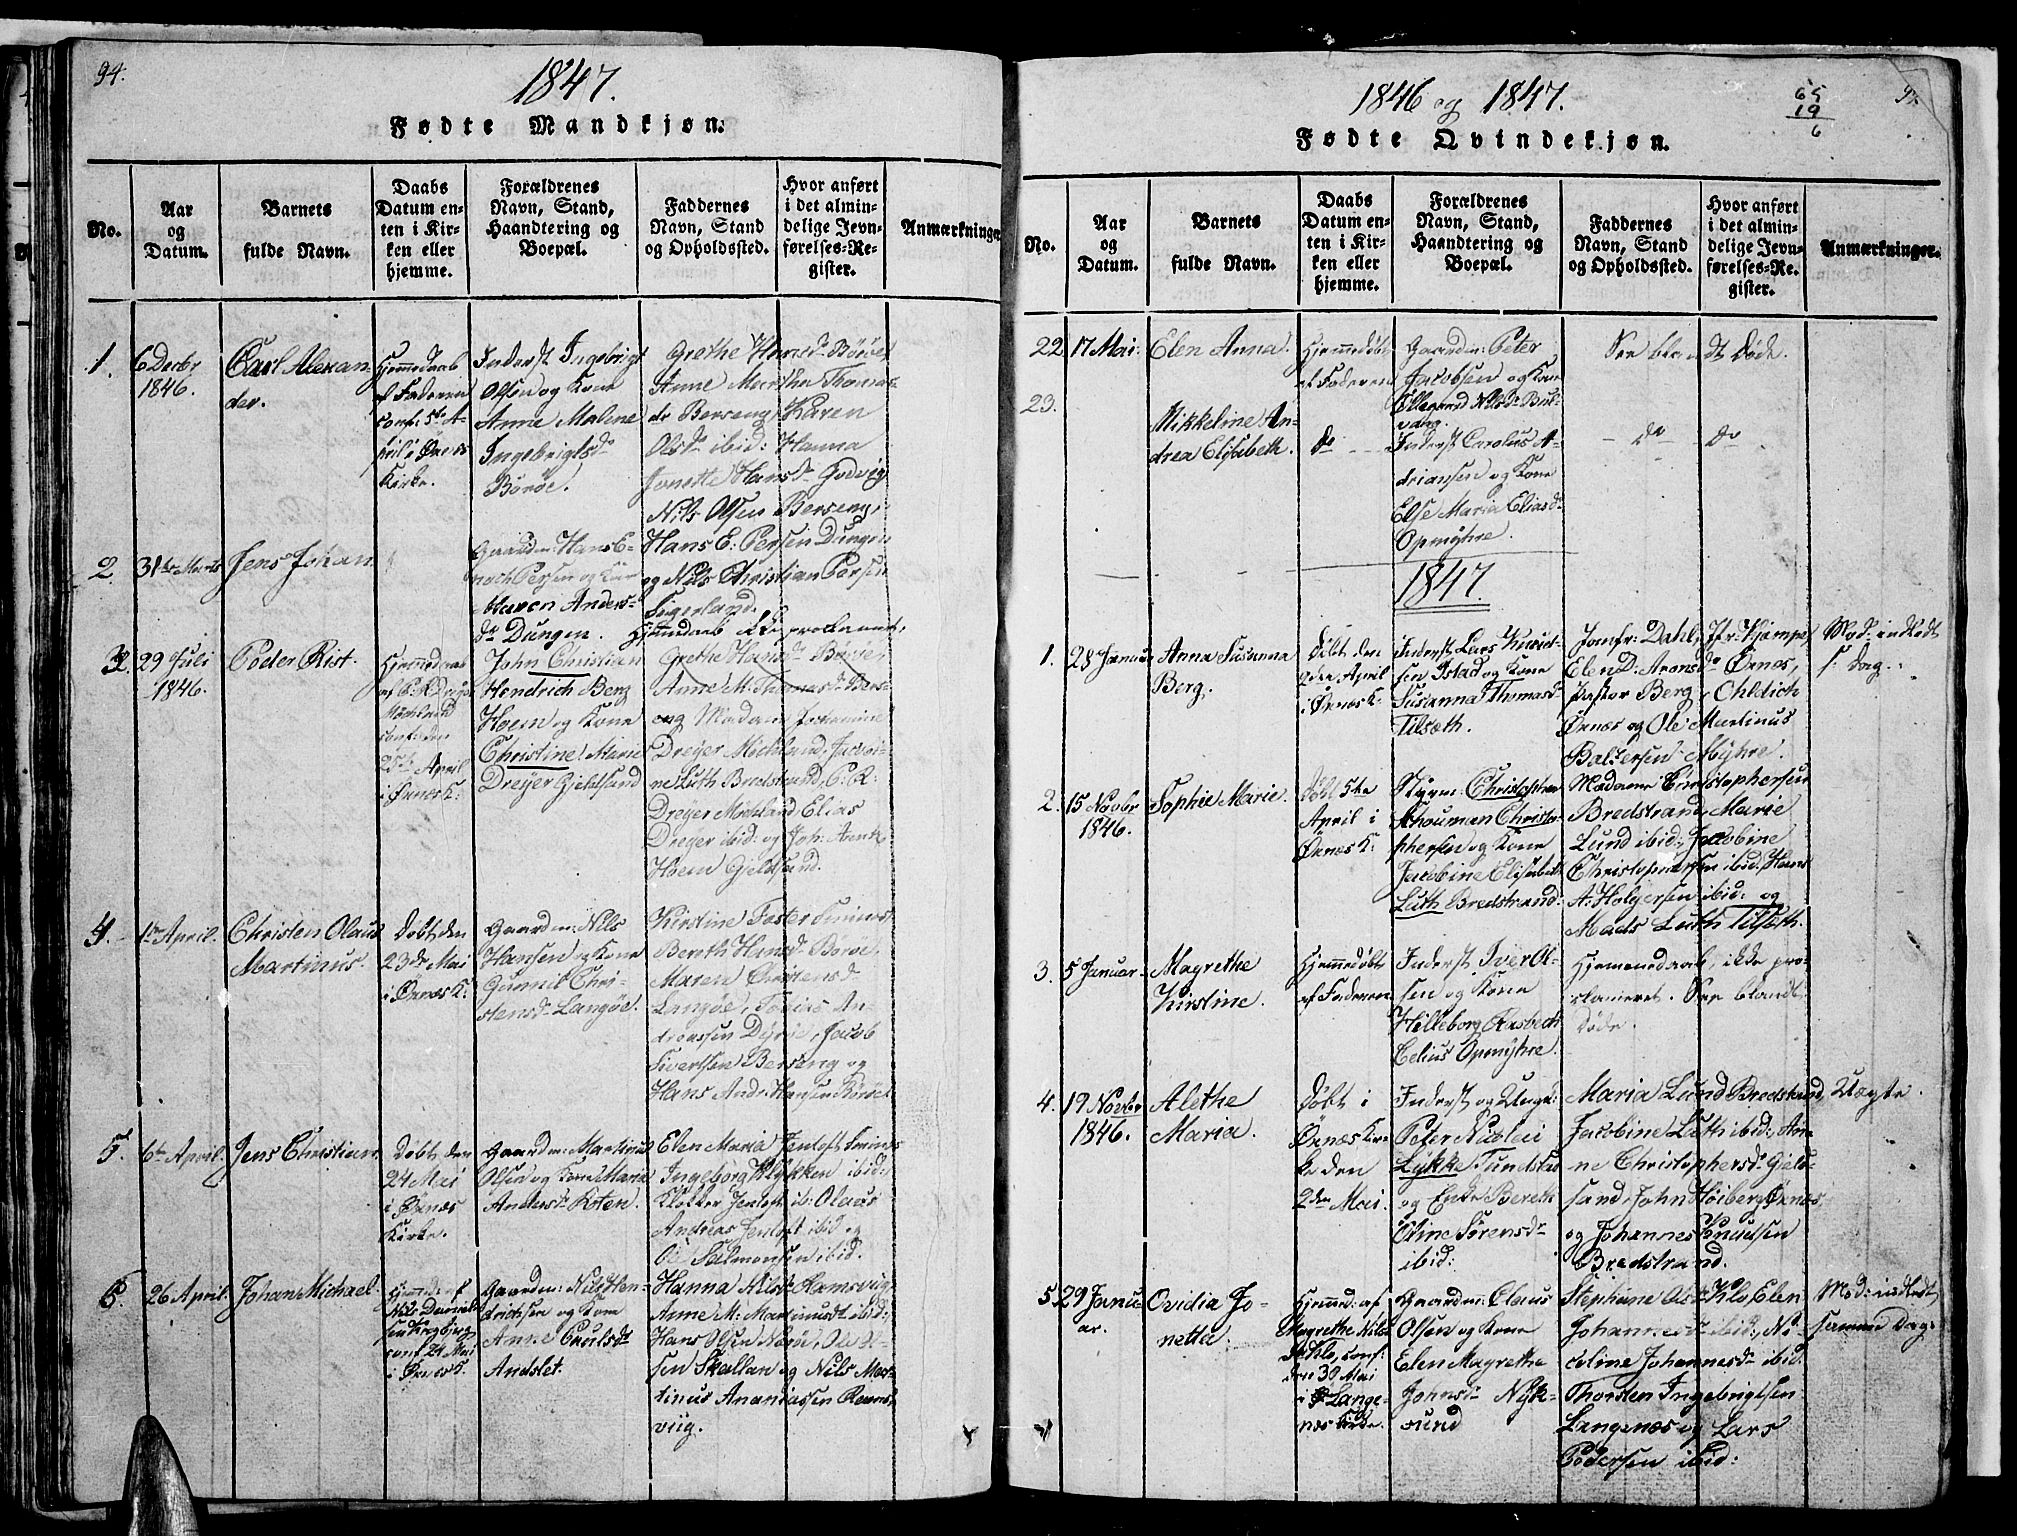 94.
1847.
Fødte Mandkjøn.
No.
Aar
og
Datum.
Barnets
fulde Navn.
Daabs
Datum en-
ten i Kir-
ken eller
hjemme.
Forældrenes
Navn, Stand,
Haandtering og
Boepæl.
Faddernes
Navn, Stand
og Opholdssted.
Hvor anført
i det almin-
delige Jevn-
førelses-Re-
gister.
Anmærkninger
1.
6 Decbr
1846.
Carl Alexan-
der.
Hjemmedaab
af Faderen
conf: 5te A-
pril i Ørnes
Kirke.
Inderst Ingebrigt
Olsen og Kone
Anne Malene
Ingebrigtsdr
Börøe.
Grethe Hansdr Börøe,
Anne Martha Thomas-
dr Berseng, Karen
Olsdr ibid: Hanna
Jonette Hansdr Godvig
Nils Olsen Berseng,
2.
31te Marts
Jens Johan
Gaardm: Hans E-
noch Persen og Kone
Maren Anders-
dr Dungen.
Hans E: Persen Dungen
og Nils Christian Persen
Sigerland.
Hjemmedaab ikke proclameret,
3.
29 Juli
1846.
Peder Rist.
Hjemmedaab
af P: R: Dreyer
Michland
conf: den
25de April
i Ørnes K:
John Christian
Hendrich Benz
Hoem og Kone
Christine Marie
Dreyer Gjeldsand
Grethe Hansdr Börøe,
Anne M. Thomasdr Bers-
eng Madam Johannine
Dreyer Michland, Jacobi-
ne Luth Bredstrand, P: R:
Dreyer Michland, Elias
Dreyer ibid: og Joh: Arnt
Hoem Gjeldsand.
4.
1te April.
Christen Olaus
Martinus.
Døbt den
23de Mai
i Ørnes K:
Gaardm: Nils
Hansen og Kone
Gunnil Chri-
stensdr Langøe.
Kirstine Foster
Berith Hansdr Börøe,
Maren Christensdr
Langøe, Tobias An-
dreassen Dyrø, Jacob
Sivertsen Berseng og
Hans Andr: Hansen Börøe
5.
6te April.
Jens Christian
Døbt den
24 Mai
i Ørnes
Kirke.
Gaardm: Martinus
Olsen og Kone Maria
Andersdr Roten.
Elen Maria Jenloft
Ingeborg Klykken ibid:
Klokker Jenloft ib: Olaus
Andreas Jenloft ibid og
Ole Salmonsen ibid.
6.
26 April.
Johan Michael
Hjemmed: af
Nils Daniel-
sen
conf 24 Mai
i Ørnes K.
Gaardm: Nils Hen-
drichsen og Kone
Anne Paulsdr
Andslet.
Hanna Nilsdr Ramsviig
Anne M: Martinusdr ibid:
Hans Olsen Börøe, Ole O-
sen Skallan og Nils Mar-
tinus Ananiassen Rams-
viig.
1846 og 1847.
65
19
6
Fødte Qvindekjøn.
No.
Aar
og
Datum.
Barnets
fulde Navn.
Daabs
Datum en-
ten i Kir-
ken eller
hjemme.
Forældrenes
Navn, Stand,
Haandtering og
Boepæl.
Faddernes
Navn, Stand
og Opholdssted.
Hvor anført
i det almin-
delige Jevn-
førelses-Re-
gister.
Anmærkninger.
22
17 Mai.
Elen Anna.
Hjemmedøbt
af Faderen
Gaardm: Peter
Jacobsen og Kone
Ellegaard Nilsdr Bul-
vang.
See blandt Døde.
23.
Mikkeline An-
drea Elisabeth.
do
Inderst Carolus A-
driansen og Kone
Else Maria Eliasdr
Opmyhre.
do do
1847.
1.
28 Januar
Anna Susanna
Berg.
Døbt den
2den April
i Ørnes K:
Inderst Lars Knud-
sen Istad og Kone
Susanna Thomasdr
Tilsæth.
Jomfr: Dahl, Jfr: Kjempe,
Elen D: Aronsdr Ørnes,
Pastor Berg, Ohldich
Ørnes og Ole Martinus
Baltzersen Myhre.
Mod: indledt
s: Dag.
2.
15 Novbr
1846.
Sophie Marie.
Døbt 5te
April i
Ørnes K:
Styrm: Christopher
Schouman Christo-
phersen og Kone
Jacobine Elisabeth
Luth Bredstrand:
Madame Christophersen
Bredstrand, Marie
Lund ibid:, Jacobine
Christophersen ibid: Hans
A: Holgersen ibid: og
Mads Luth Tilsæth.
3.
5 Januar
Magrethe
Kirstine.
Hjemmedøbt
af Faderen
Inderst Iver Ol-
sen og Kone
Hilleborg Rasbech
Celius Opmyhre.
Hjemmedaab, ikke pro-
clameret. See blandt
Døde.
4.
19 Novbr
1846.
Alethe
Maria.
Døbt i
Ørnes Kir-
ke den
2den Mai
Inderst og Ungk:
Peter Nicolai
Lykke Tundstad
og Enke Bereth
Oline Sørensdr
ibid:
Maria Lund Bredstrand,
Jacobine Luth ibid:,
Christophersdr Gjeld-
sand, John Høiberg Ørnes,
og Johannes Knudsen
Bredstrand.
Uægte.
5.
29 Janu-
ar.
Ovidia Jo-
netta.
Hjemmed: af
Magrethe Nilsdr
Klo, conf.
den 30 Mai
i Lange-
nes Kirke.
Gaardm: Olaus
Olsen og Kone
Elen Magrethe
Johnsdr Nyk-
sund
Stephine Olsdr Klo, Elen
Johannesdr ibid:, Ni-
coline Johannesdr ibid.
Thorsten Ingebrigtsen
Langenæs og Lars
Pedersen ibid:
Mod: indledt
samme Dag.